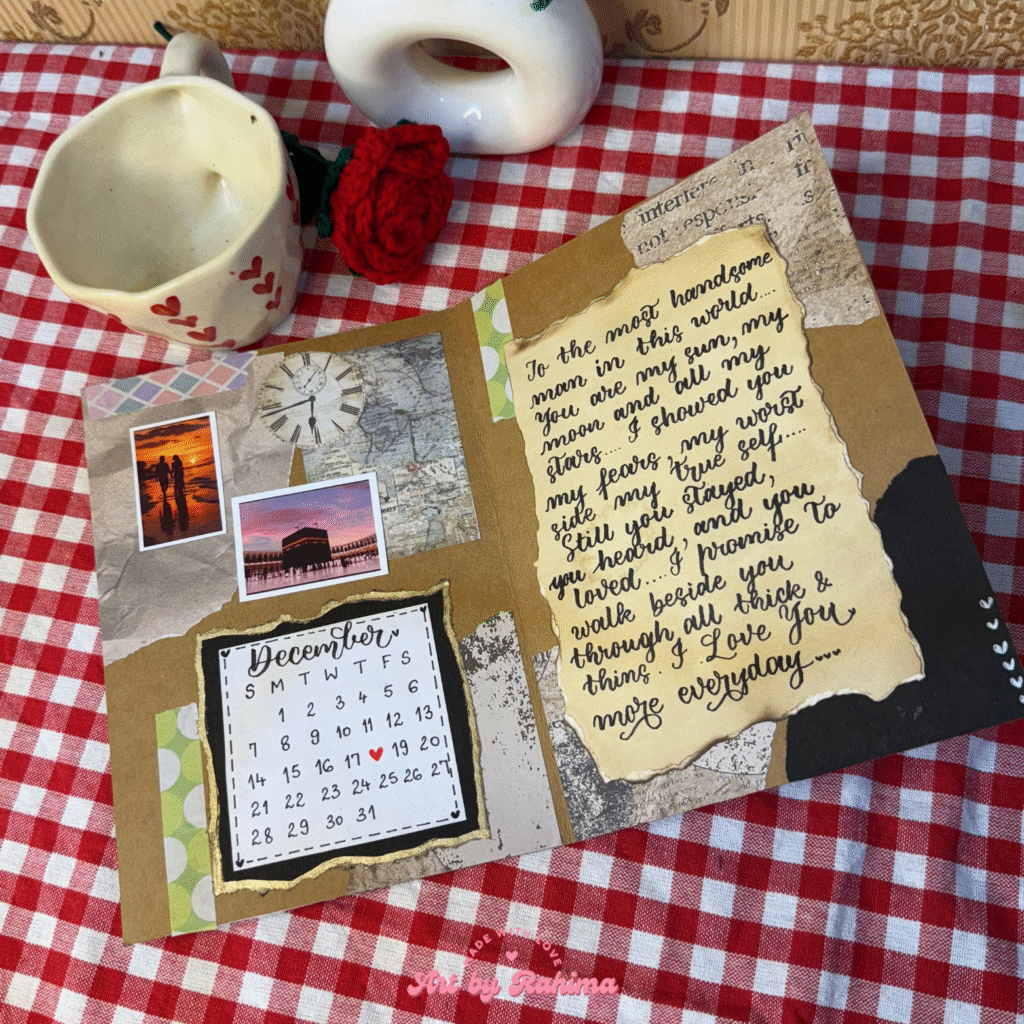 December
S M T W T F S
1 2 3 4 5 6
7 8 9 10 11 12 13
14 15 16 17 ♥ 19 20
21 22 23 24 25 26 27
28 29 30 31
To the most handsome
man in this world....
You are my sun, my
moon and all my
stars.... I showed you
my fears, my worst
side my true self,....
Still you stayed,
you heard, and you
loved.... I promise to
walk beside you
through all thick &
thins. I Love You
more everyday...
not
MADE WITH LOVE
Art by Rahima